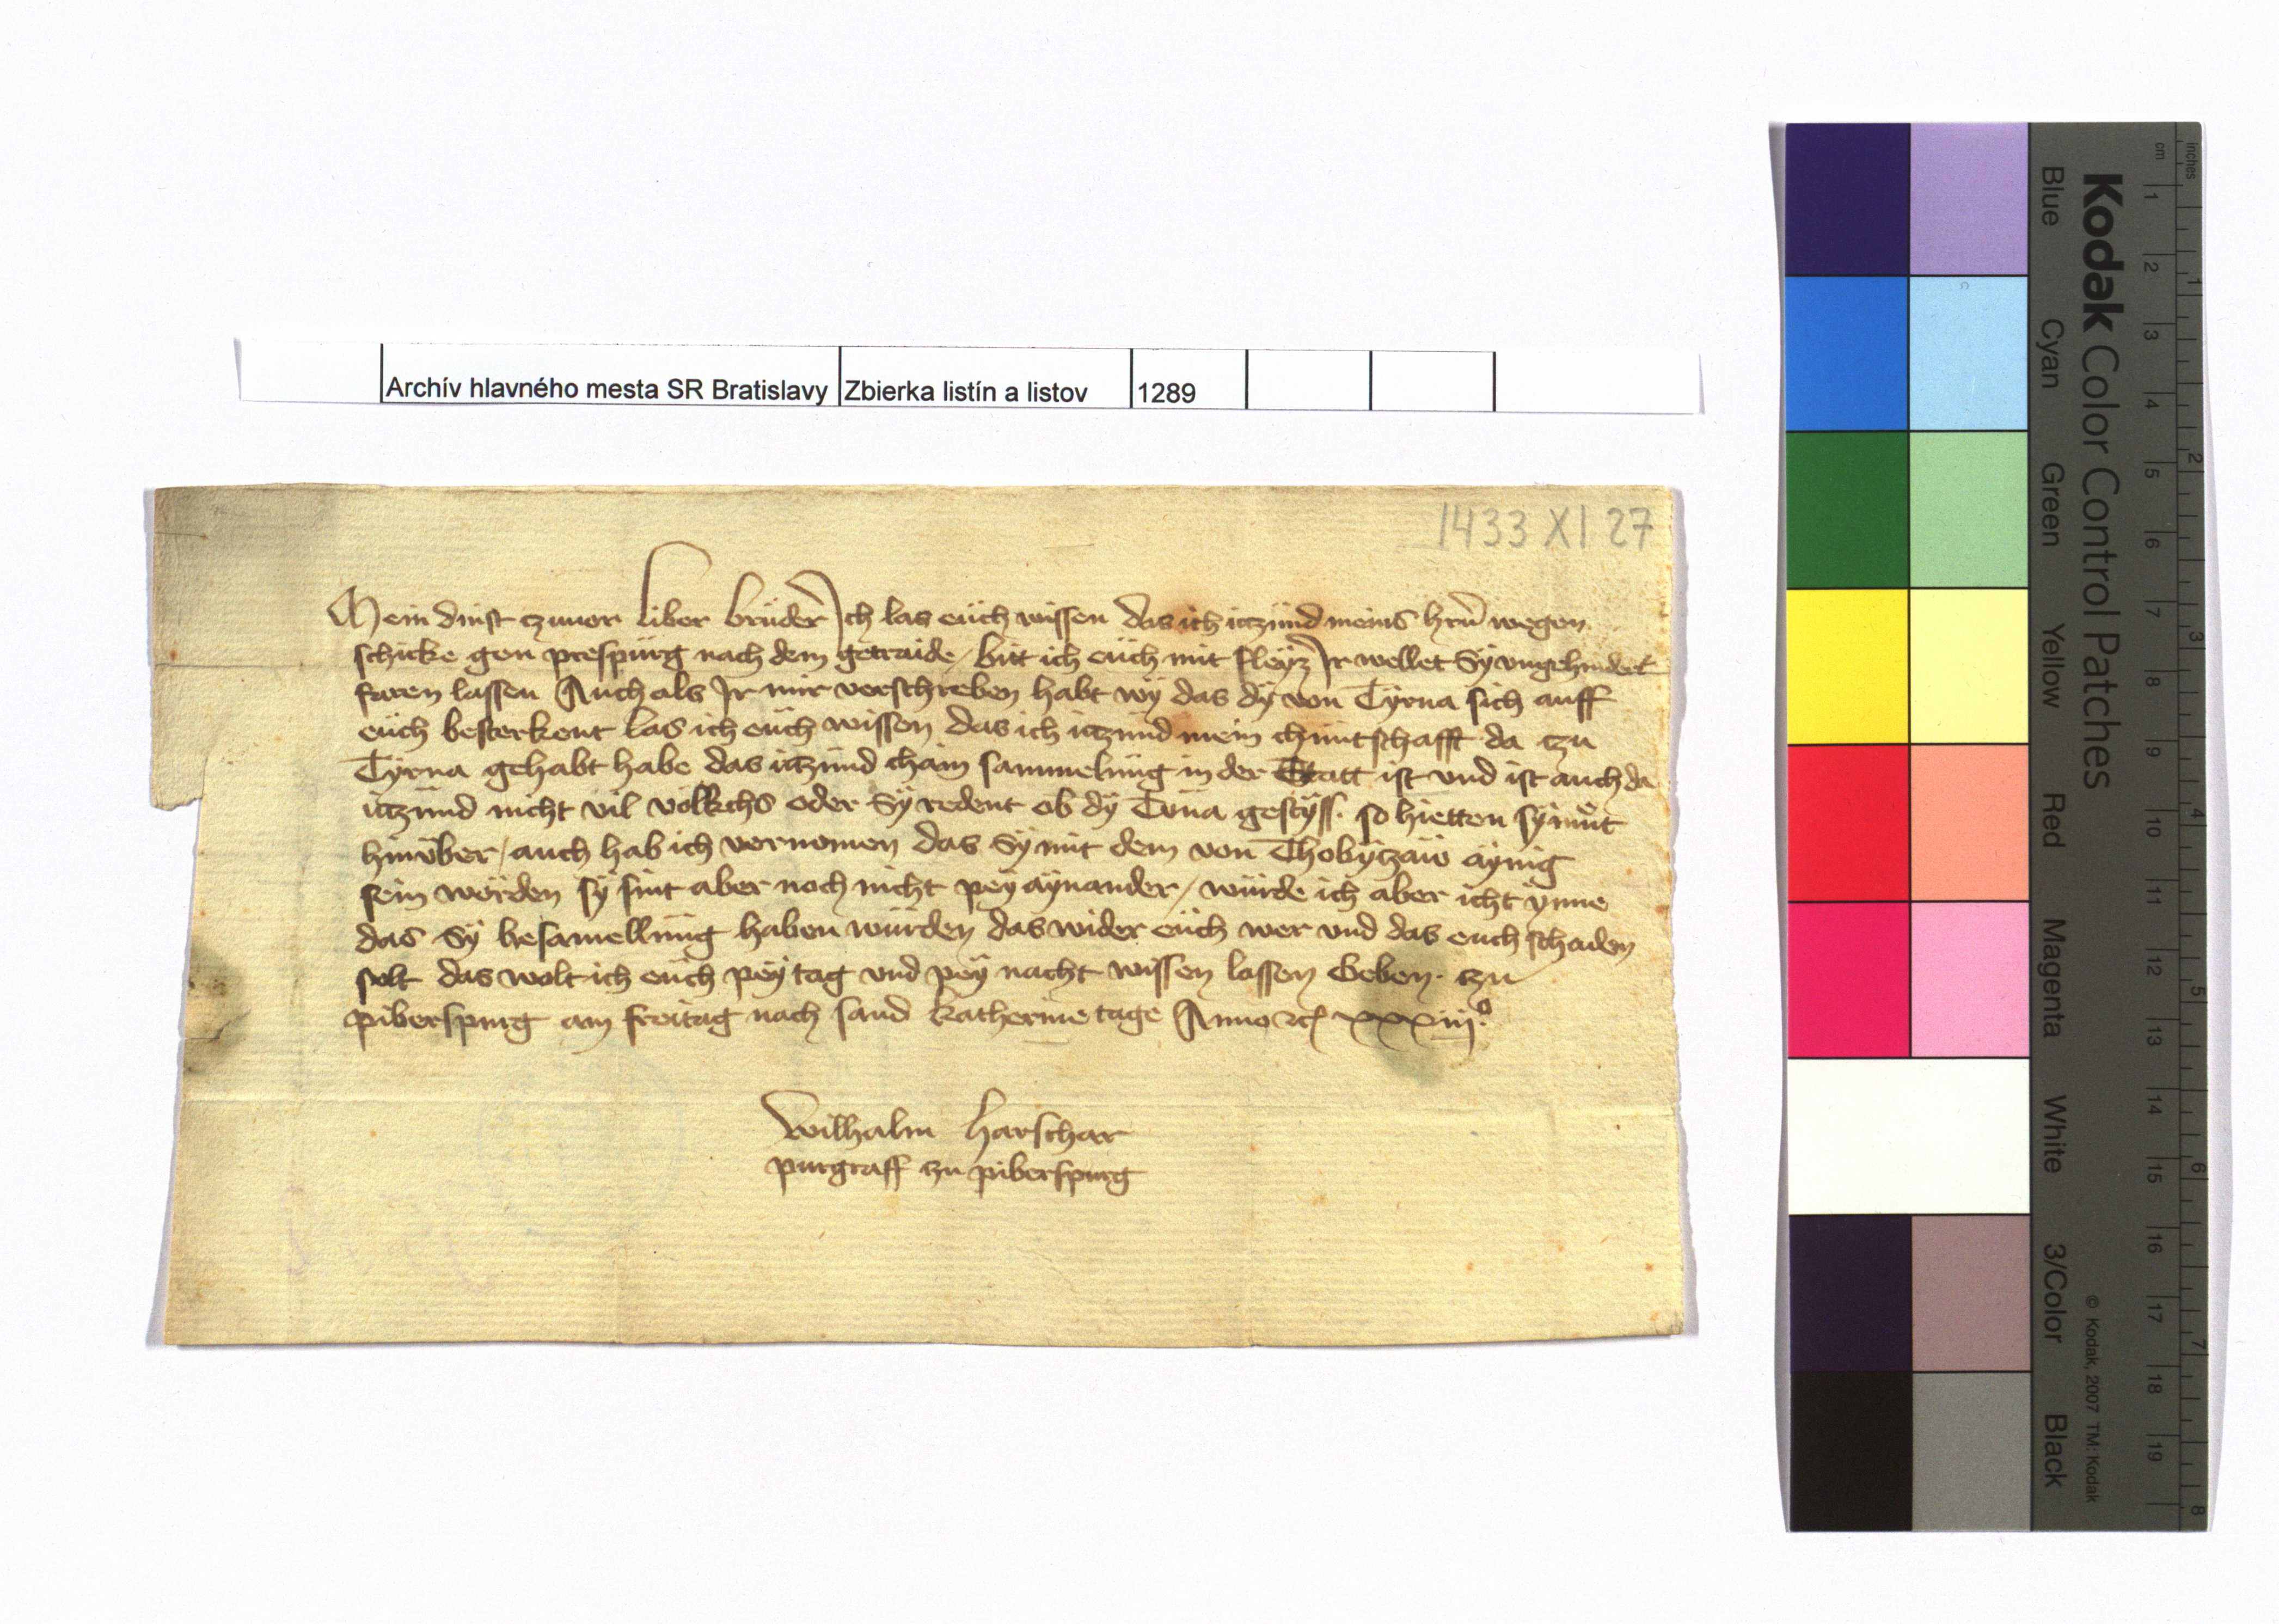 Archív hlavného mesta SR Bratislavy Zbierka listín a listov 1289
1433 XI 27
Mein dinst czuuor liber brüder Ich las eüch wissen das ich iczünd meins hern wegen
schicke gen prespürg nach dem getraide / bitt ich eüch mit fleÿz Ir wellet Sÿ vngehindert
faren lassen Auch als Ir mir verschreben habt wÿ das dÿ von Tÿrna sich auff
eüch besterkent las ich eüch wissen das ich iczünd mein chüntschafft da czu
Tÿrna gehabt habe das iczünd chain sammelüng in der Statt ist vnd ist auch da
iczünd nicht vil völkchs oder Sÿ redent ob dÿ Tüna gestÿss. so hietten sÿ müt
hinüber / auch hab ich vernomen das Sÿ mit dem von Thobÿczaw aÿnig
sein worden sÿ sint aber noch nicht peÿ aÿnander / würde ich aber icht ÿnne
das Sÿ besamellüng haben würden das wider eüch wer vnd das euch schaden
solt das wolt ich eüch peÿ tag vnd peÿ nacht wissen lassen Geben. czu
piberspurg am freitag nach sand katherine tage Anno etc xxxiij.o
Wilhalm harschar
purgraff czu piberspurg
Kodak Color Control Patches
Blue Cyan Green Yellow Red Magenta White 3/Color Black
© Kodak, 2007 TM: Kodak
inches 1 2 3 4 5 6 7 8
cm 1 2 3 4 5 6 7 8 9 10 11 12 13 14 15 16 17 18 19